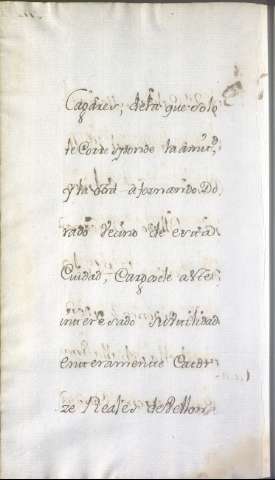 Capares, de la que solo
le Corresponde la mitad,
y la otra a fernando Do
rado Vecino de esta
Ciudad, Cargasele a Este
interesado utilidad
enteramente Cator
ze Reales de Vellon.